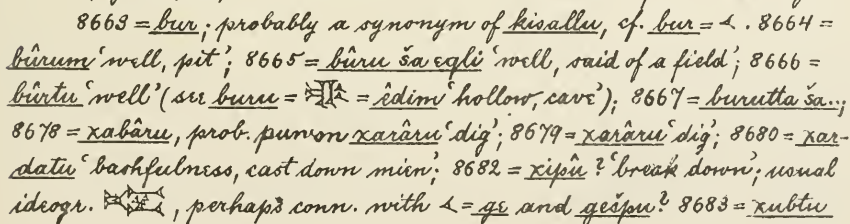 8663 = bur; probably a synonym of kisallu, cf. bur = 𒌋. 8664 =
bûrum 'well, pit'; 8665 = bûru ša eqli 'well, said of a field'; 8666 =
bûrtu 'well' (see buru = = êdim 'hollow, cave'); 8667 = burutta ša..;
8678 = xabâru, prob. pun on xarâru 'dig'; 8679 = xarâru 'dig'; 8680 = xar-
datu 'bashfulness, cast down mien'; 8682 = xipû ? 'break down'; usual
ideogr. , perhaps conn. with 𒌋 = ge and gešpu? 8683 = xubtu